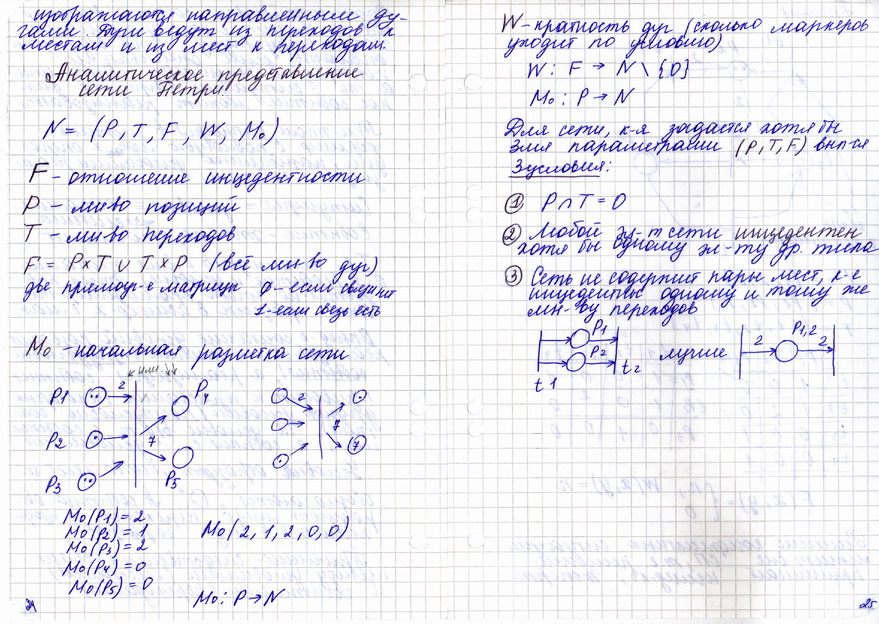 изображаются направленными ду-
гами. Дуги ведут из переходов к
местам и из мест к переходам.
Аналитическое представление
сети Петри
N = (P, T, F, W, M₀)
F - отношение инцедентности
P - мн-во позиций
T - мн-во переходов
F = P×T ∪ T×P (всё мн-во дуг)
две прямоуг-е матрицы 0 - если связи нет
1 - если связь есть
M₀ - начальная разметка сети
или
P1 2 P4
P2 7
P3 P5
2
7
7
M₀(P1) = 2
M₀(P2) = 1
M₀(P3) = 2
M₀(P4) = 0
M₀(P5) = 0
M₀(2, 1, 2, 0, 0)
M₀: P → N
24
W - кратность дуг (сколько маркеров
уходит по условию)
W: F → N \ {0}
M₀: P → N
Для сети, к-я задается хотя бы
3мя параметрами (P, T, F) вып-ся
3 условия:
① P ∩ T = 0
② Любой эл-т сети инцедентен
хотя бы одному эл-ту др. типа
③ Сеть не содержит пары мест, к-е
инцедентны одному и тому же
мн-ву переходов
P1
P2
t1 t2
лучше
2 P1,2 2
25